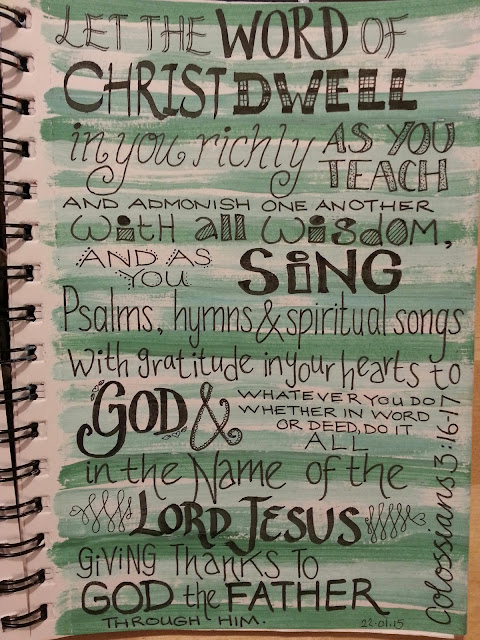 LET THE WORD OF
CHRIST DWELL
in you richly AS YOU
TEACH
AND ADMONISH ONE ANOTHER
with all wisdom,
AND AS
YOU SING
Psalms, hymns & spiritual songs
with gratitude in your hearts to
GOD & WHATEVER YOU DO
WHETHER IN WORD
OR DEED, DO IT
ALL
in the Name of the
LORD JESUS
giving Thanks to
GOD the FATHER
THROUGH HIM.
22-01.15
Colossians 3:16-17